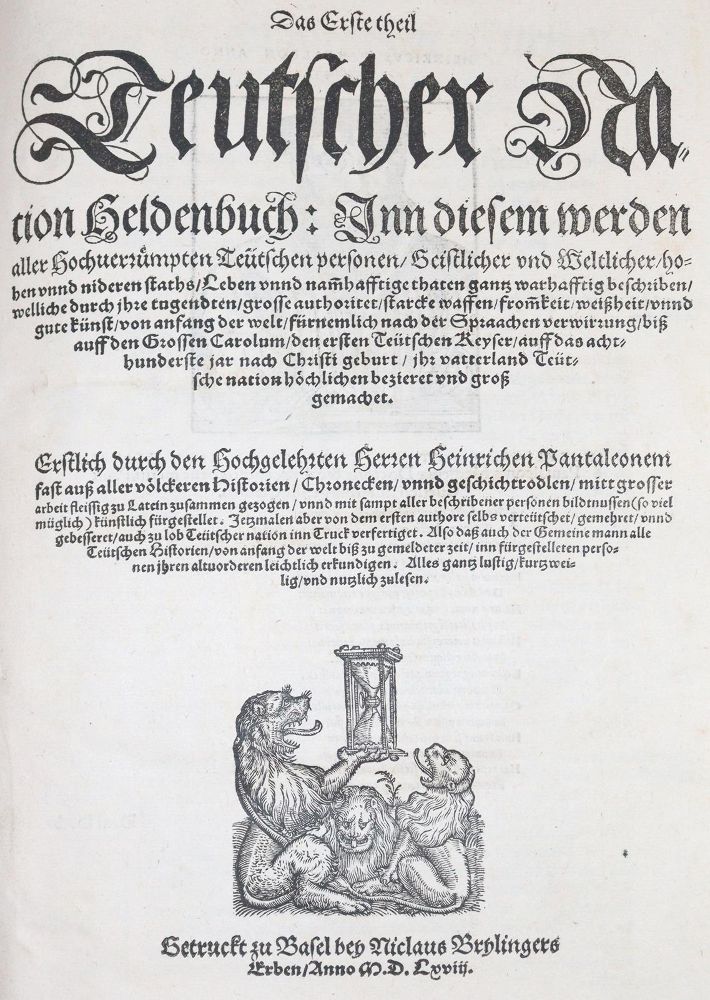 Das Erste theil
Teutscher Na⸗
tion Heldenbuch: Inn diesem werden
aller Hochuerrümpten Teütschen personen/ Geistlicher vnd Weltlicher/ ho⸗
hen vnnd nideren staths/ Leben vnnd nam̃hafftige thaten gantz warhafftig beschriben/
welliche durch jhre tugendten/ grosse authoritet/ starcke waffen/ from̃keit/ weißheit/ vnnd
gute künst/ von anfang der welt/ fürnemlich nach der Spraachen verwirrung/ biß
auff den Grossen Carolum/ den ersten Teütschen Keyser/ auff das acht⸗
hunderste jar nach Christi geburt/ jhr vatterland Teüt⸗
sche nation höchlichen bezieret vnd groß
gemachet.
Erstlich durch den Hochgelehrten Herren Heinrichen Pantaleonem
fast auß aller völckeren Historien/ Chronecken/ vnnd geschichtrodlen/ mitt grosser
arbeit fleissig zu Latein zusammen gezogen/ vnnd mit sampt aller beschribener personen bildtnussen (so viel
müglich) künstlich fürgestellet. Jetzmalen aber von dem ersten authore selbs verteütschet/ gemehret/ vnnd
gebesseret/ auch zu lob Teütscher nation inn Truck verfertiget. Also daß auch der Gemeine mann alle
Teütschen Historien/ von anfang der welt biß zu gemeldeter zeit/ inn fürgestelleten perso⸗
nen jhren altuorderen leichtlich erkundigen. Alles gantz lustig/ kurtzwei⸗
lig/ vnd nutzlich zulesen.
Getruckt zu Basel bey Niclaus Brylingers
Erben/ Anno M. D. Lxviij.